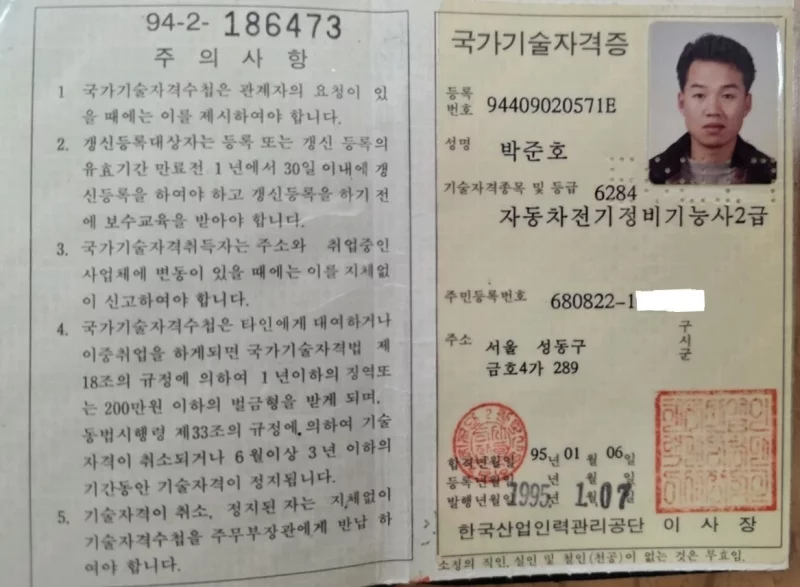 94-2- 186473
주 의 사 항
1 국가기술자격수첩은 관계자의 요청이 있
을 때에는 이를 제시하여야 합니다.
2. 갱신등록대상자는 등록 또는 갱신 등록의
유효기간 만료전 1년에서 30일 이내에 갱
신등록을 하여야 하고 갱신등록을 하기 전
에 보수교육을 받아야 합니다.
3. 국가기술자격취득자는 주소와 취업중인
사업체에 변동이 있을 때에는 이를 지체없
이 신고하여야 합니다.
4. 국가기술자격수첩은 타인에게 대여하거나
이중취업을 하게되면 국가기술자격법 제
18조의 규정에 의하여 1년이하의 징역또
는 200만원 이하의 벌금형을 받게 되며,
동법시행령 제33조의 규정에 의하여 기술
자격이 취소되거나 6월이상 3년 이하의
기간동안 기술자격이 정지됩니다.
5. 기술자격이 취소, 정지된 자는 지체없이
기술자격수첩을 주무부장관에게 반납 하
여야 합니다.
국가기술자격증
등록
번호 94409020571E
성명 박준호
기술자격종목 및 등급 6284
자동차전기정비기능사2급
주민등록번호 680822-1
주소 서울 성동구
금호4가 289
구
시
군
합격년월일 95년 01 월 06 일
등록년월일 년 월 일
발행년월일 1995 1.07
한국산업인력관리공단 이 사 장
소정의 직인, 실인 및 철인(천공)이 없는 것은 무효임.